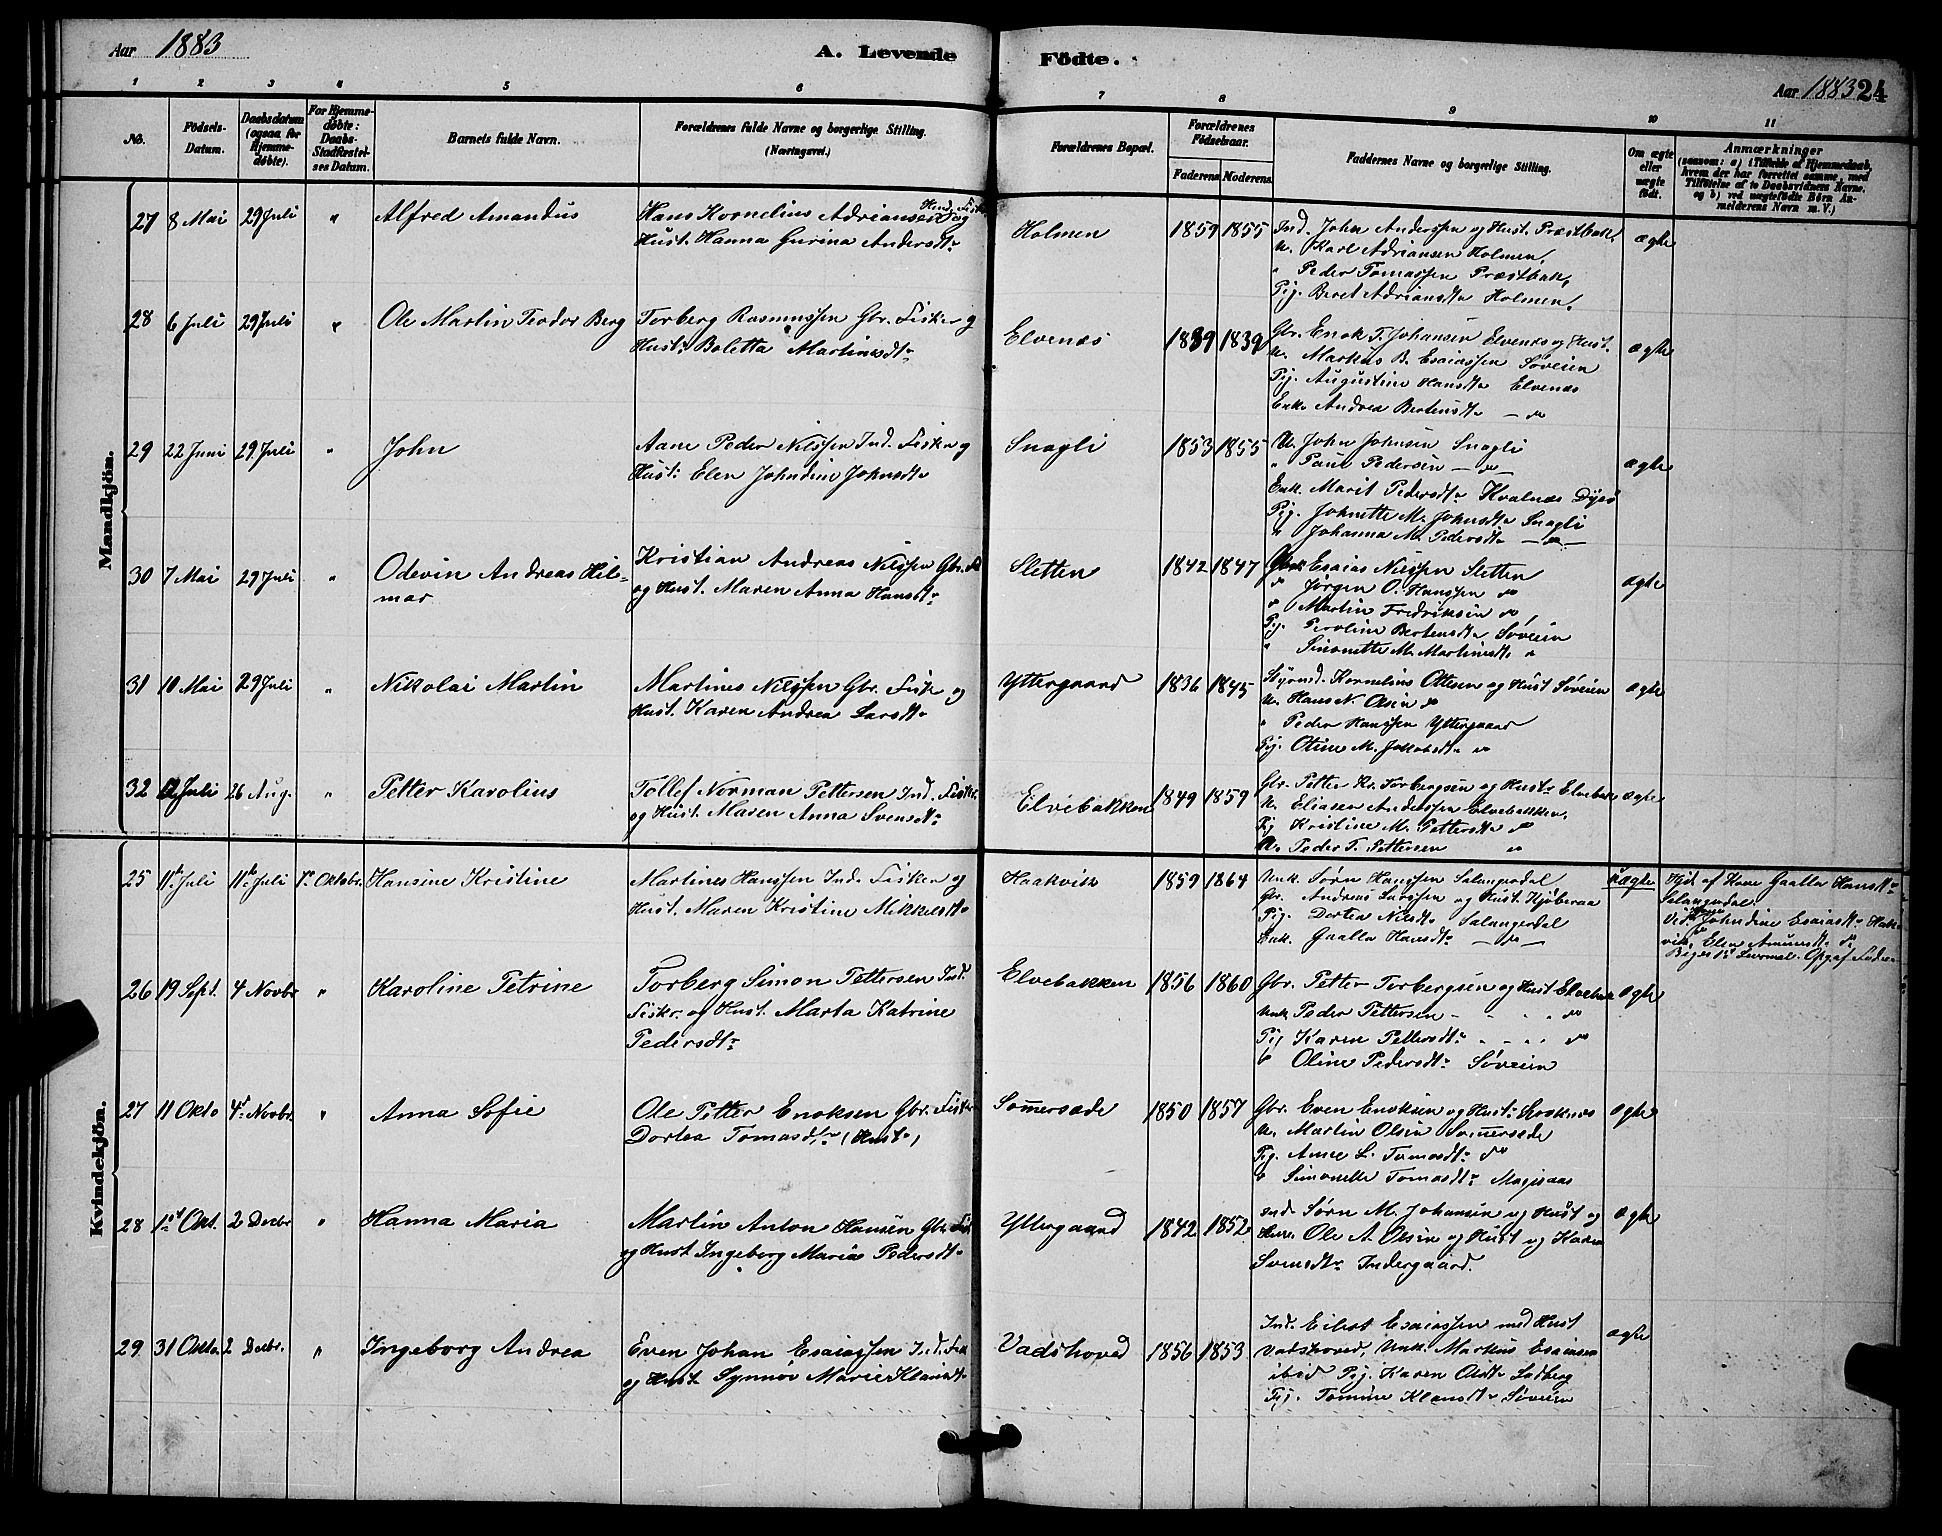 Aar 1883
A. Levende
Födte.
Aar 1883 24
1 2 3 4 5 6 7 8 9 10 11
No.
Födsels-Datum.
Daabsdatum (ogsaa for Hjemmedøbte).
For Hjemmedøbte: Daabs-Stadfæstelses Datum.
Barnets fulde Navn.
Forældrenes fulde Navne og borgerlige Stilling. (Næringsvei.)
Forældrenes Bopæl.
Forældrenes Födselsaar.
Faderens. Moderens.
Faddernes Navne og borgerlige Stilling.
Om ægte eller uægte født.
Anmærkninger
(saasom: a) i Tilfælde af Hjemmedaab, hvem der har forrettet samme, med Tilføielse af to Daabsvidners Navne, og b) ved uægtefødte Börn Anmelderens Navn m. V.)
Mandkjön.
27 8 Mai 29 Juli " Alfred Amandus
Hans Kornelius Adriansen Ind. Fisk. og
Hust. Hanna Gurina Andersdtr
Holmen 1859 1855
Ind. John Anderssen og Hust. Præstbak,
U. Karl Adriansen Holmen,
" Peder Tomassen Præstbak,
Pig. Beret Adriansdtr Holmen.
ægte
28 6 Juli 29 Juli " Ole Martin Teodor Berg
Torberg Rasmussen Gbr. Fisker og
Hust. Boletta Martinusdtr
Elvenæs 1839 1839
Gbr. Enok T. Johansen Elvenæs og Hust.
U. Markus B. Esaiassen Søveien
Pig. Augustine Hansdtr Elvenæs
Enk. Andrea Bertensdtr - do
ægte
29 22 Juni 29 Juli " John
Aane Peder Nilssen Ind. Fisker og
Hust: Elen Johndine Johnsdtr
Snagli 1853 1855
U. John Johnsen Snagli
" Paul Pedersen - do -
Enk. Marit Pedersdtr Kvalnæs Dyrø
Pig. Johnette M. Johnsdtr Snagli
" Johanna M. Pedersdtr - do -
ægte
30 7 Mai 29 Juli " Odevin Andreas Hilmar
Kristian Andreas Nilssen Gbr. Fisk
og Hust. Maren Anna Hansdtr
Sletten 1842 1847
Gbr. Esaias Nilssen Sletten
do Jørgen O. Hanssen do
do Martin Fredriksen do
Pig. Peroline Bertensdtr Søveien
" Simonette M. Martinsdtr "
ægte
31 10 Mai 29 Juli " Nikolai Martin
Martines Nilssen Gbr. Fisk. og
Hust. Karen Andrea Larsdtr
Yttergaard 1836 1845
Styrmd. Kornelius Ottesen og Hust Søveien
U. Hans N. Olsen do
" Peder Hanssen Yttergaard
Pig. Otine M. Jakobsdtr do
ægte
32 12 Juli 26 Aug. " Petter Karolius
Tollef Norman Pettersen Ind. Fisker
og Hust. Maren Anna Svensdtr
Elvebakken 1849 1859
Gbr. Petter Kr. Torbergsen og Hustr Elvebak
U. Eliasen Anderssen Elvebakken,
Pig Kristine M. Pettersdtr do
U. Peder T. Pettersen do
ægte
Kvindekjön.
25 11te Juli 11te Juli 7de Oktobr. Hansine Kristine
Martines Hanssen Ind. Fisker og
Hust. Maren Kristine Mikkelsdtr
Haakvik 1859 1864
Unk. Sørn Hanssen Salangsdal
Gbr. Andreas Larssen og Hust. Kjøberaa
Pig. Dortea Nilsdtr Salangsdal
Enk. Gaalla Hansdtr - do -
uægte
Hjdt af Kone Gaalla Hansdtr
Salangsdal.
Vidn. Johndine Esaiasdtr Haakvik, Elen Amundsdtr do
Opgaf
26 19 Sept. 4 Novbr " Karoline Petrine
Torberg Simon Pettersen Ind.
Fiskr. og Hust. Marta Katrine
Pedersdtr
Elvebakken 1856 1860
Gbr. Petter Torbergsen og Hust Elvebak
Unk. Peder Pettersen - do
Pig Karen Pettersdtr do
" Oline Pedersdtr Søveien
ægte
27 11 Okto 4de Novbr " Anna Sofie
Ole Petter Enoksen Gbr. Fisker
Dortea Tomasdtr (Hustr)
Somersæde 1850 1857
Gbr. Even Enoksen og Hust.
U. Martin Olsen Somersæde
Pig. Anne L. Tomasdtr do
" Simonette Tomasdtr Magisaas
ægte
28 1ste Okt. 2 Decbr " Hanna Maria
Martin Anton Hansen Gbr. Fisk
og Hust Ingeborg Maria Pedersdtr
Yttergaard 1842 1852
Ind. Sørn M. Johansen og Hust og
Ole A. Olsen og Hust og Karen
Svensdtr Indergaard.
ægte
29 31 Okto. 2 Decbr. " Ingeborg Andrea
Even Johan Esaiassen Ind. Fisk
og Hust Synnøv Marie Klausdtr
Vadshoved 1856 1853
Ind. Eilert Esaiassen med Hust
Vadshoved, Unk. Markus Esaiasen
ibid Pig. Karen Olsdtr Ladberg
Pig. Tomine Klausdtr Søveien
ægte